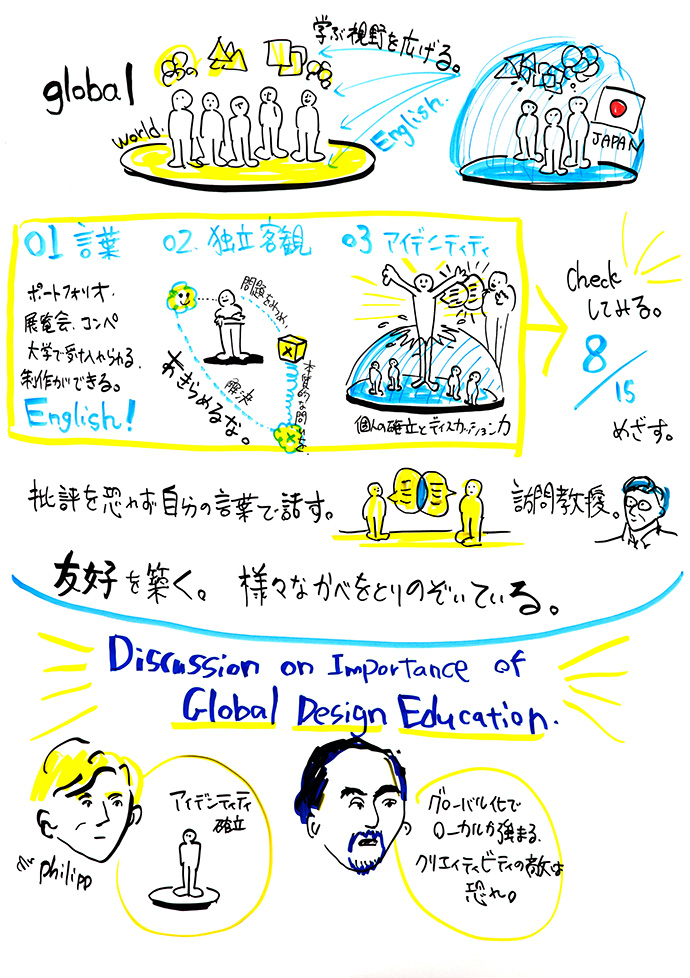 学ぶ視野を広げる。
global
world.
English.
JAPAN
01 言葉
ポートフォリオ.
展覧会、コンペ
大学で受け入れられる.
制作ができる。
English!
02. 独立客観
問題をみつけ
本質的な問い
解決
あきらめるな。
03 アイデンティティ
個人の確立とディスカッション力
Check
してみる。
8/15
めざす。
批評を恐れず自分の言葉で話す。
訪問教授。
友好を築く。 様々なかべをとりのぞいている。
Discussion on Importance of
Global Design Education.
アイデンティティ
確立
philipp
グローバル化で
ローカルが強まる.
クリエイティビティの敵は
恐れ。